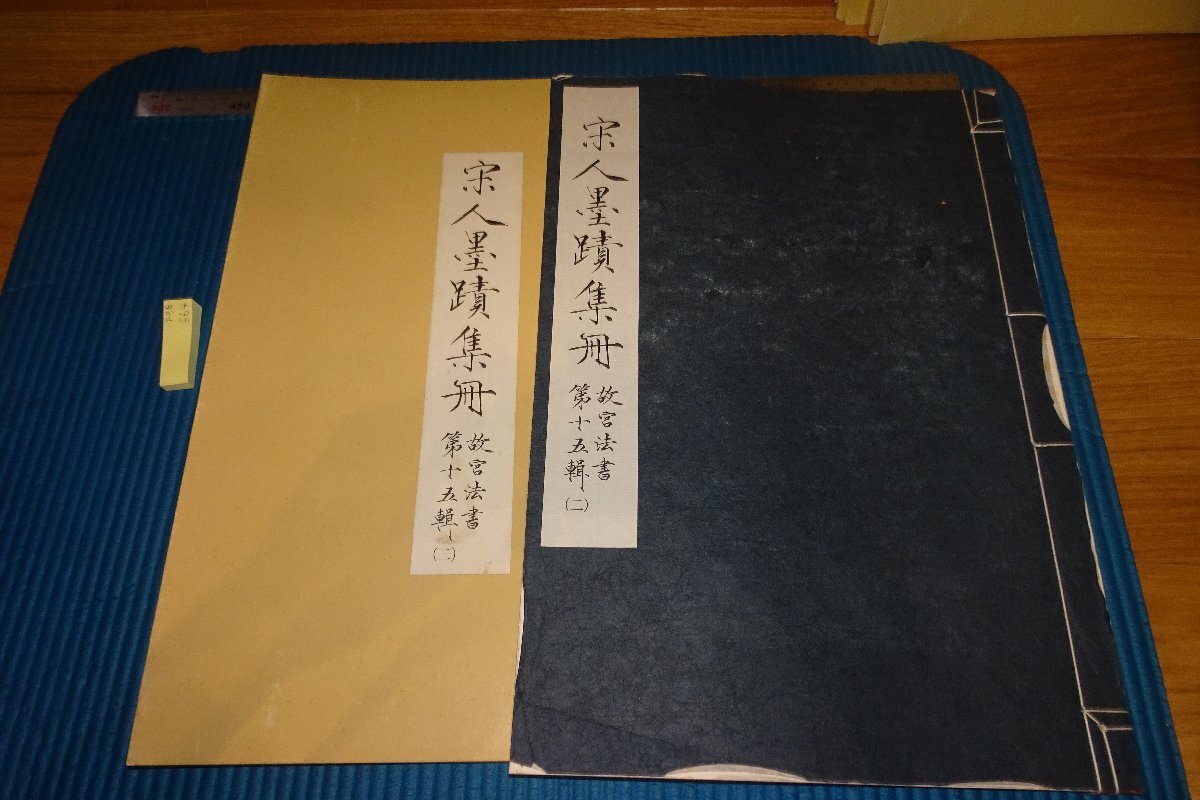 宋人墨蹟集冊
故宮法書
第十五輯(二)
宋人墨蹟集冊
故宮法書
第十五輯(二)